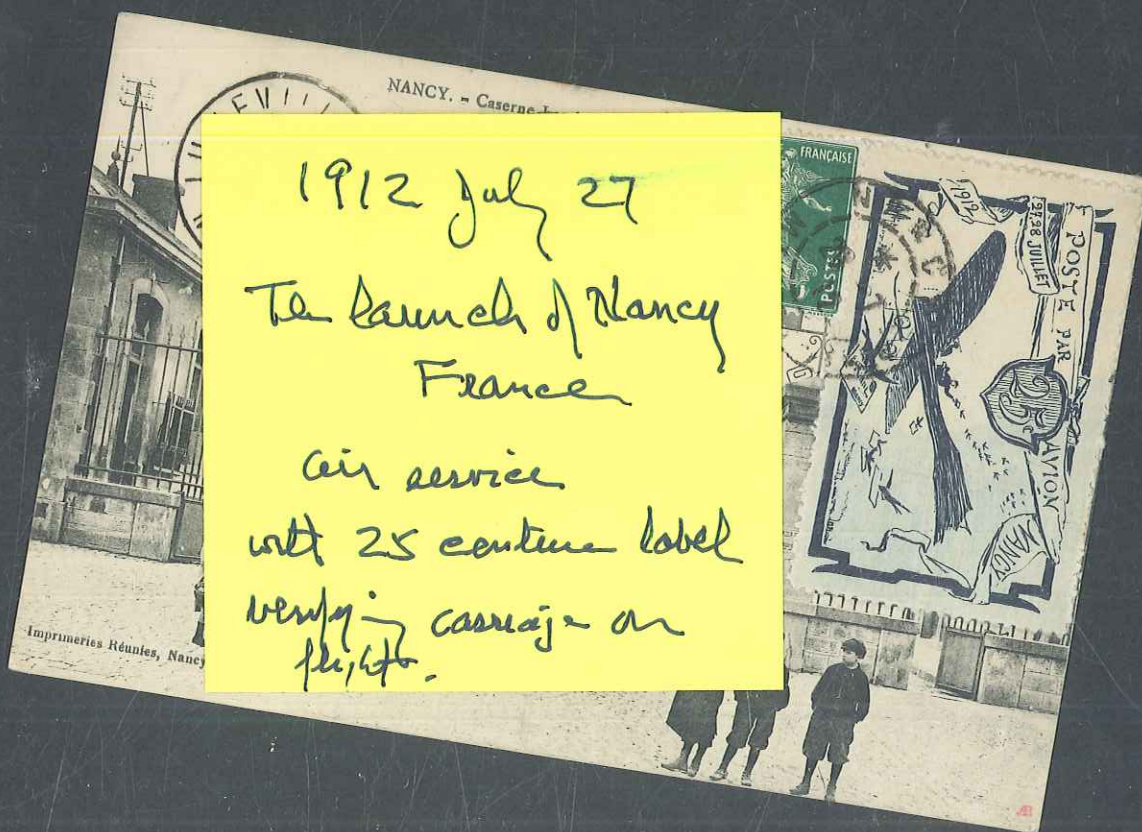 NANCY. - Caserne
1912 July 27
The launch of Nancy
France
air service
with 25 centime label
verifying carriage on
flights.
FRANÇAISE
POSTES
1912
27.28 JUILLET
POSTE PAR
25
AVION
NANCY
Imprimeries Réunies, Nancy